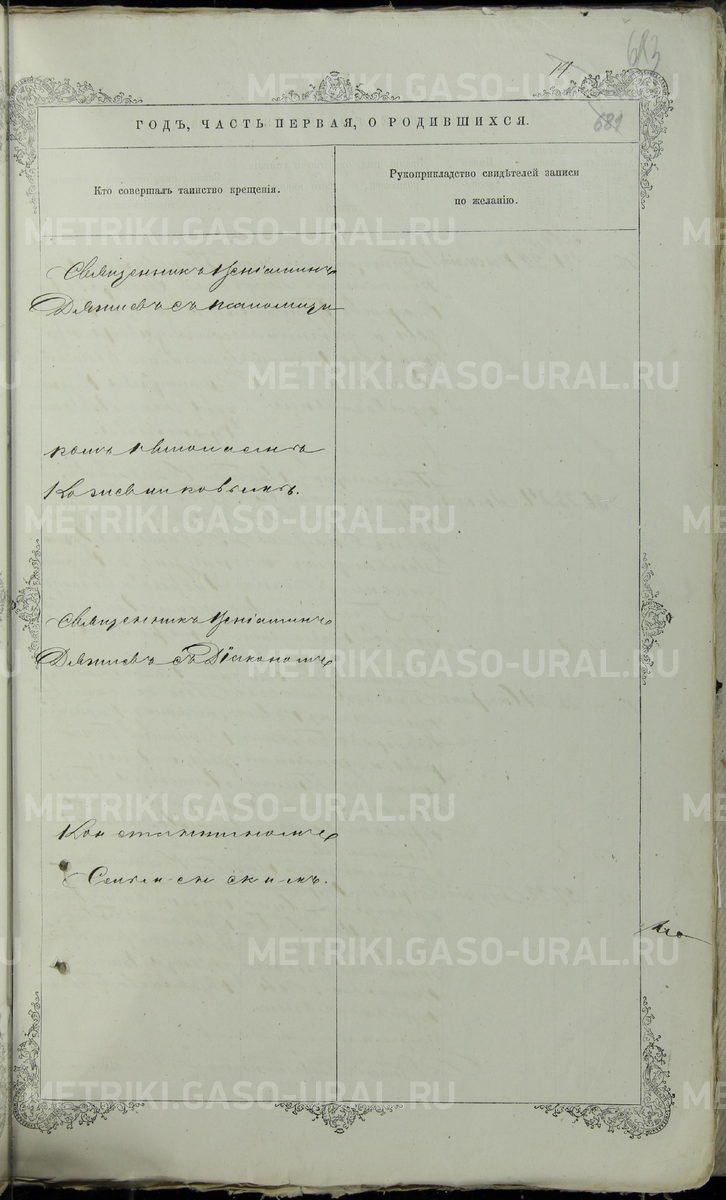 613
11
681
ГОДЪ, ЧАСТЬ ПЕРВАЯ, О РОДИВШИХСЯ.
Кто совершалъ таинство крещенія.
Рукоприкладство свидѣтелей записи
по желанію.
Священникъ Веніаминъ
съ псаломщи
комъ
Кожевниковымъ.
Священникъ Веніаминъ
съ Діакономъ
Константиномъ
METRIKI.GASO-URAL.RU
METRIKI.GASO-URAL.RU
METRIKI.GASO-URAL.RU
METRIKI.GASO-URAL.RU
METRIKI.GASO-URAL.RU
METRIKI.GASO-URAL.RU
METRIKI.GASO-URAL.RU
METRIKI.GASO-URAL.RU